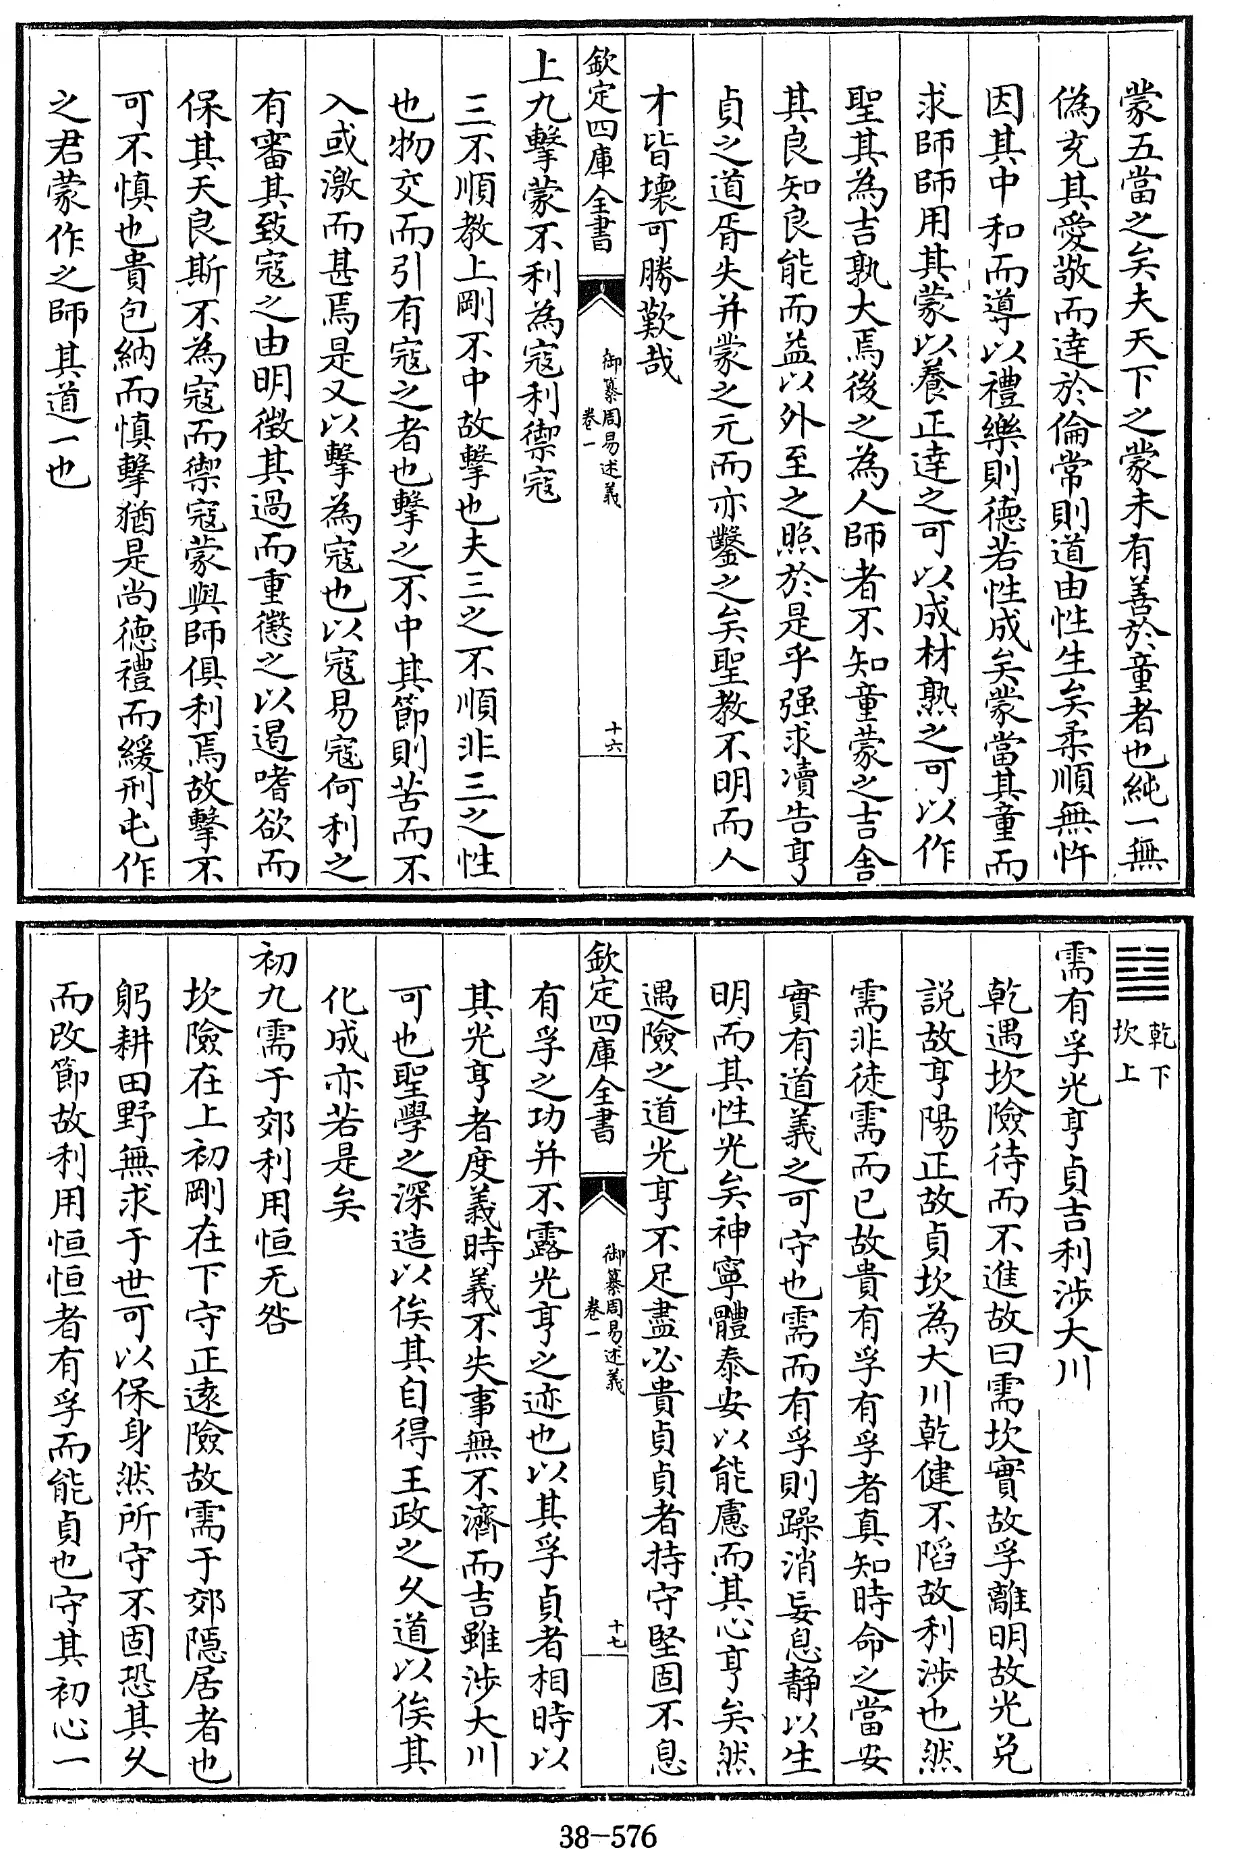 蒙五當之矣夫天下之蒙未有善於童者也純一無
偽充其愛敬而達於倫常則道由性生矣柔順無忤
因其中和而導以禮樂則德若性成矣蒙當其童而
求師師用其蒙以養正達之可以成材熟之可以作
聖其為吉孰大焉後之為人師者不知童蒙之吉舍
其良知良能而益以外至之照於是乎强求瀆告亨
貞之道胥失并蒙之元而亦鑿之矣聖教不明而人
才皆壞可勝歎哉
欽定四庫全書
御纂周易述義
卷一
十六
上九擊蒙不利為寇利禦寇
三不順教上剛不中故擊也夫三之不順非三之性
也物交而引有寇之者也擊之不中其節則苦而不
入或激而甚焉是又以擊為寇也以寇易寇何利之
有審其致寇之由明徵其過而重懲之以遏嗜欲而
保其天良斯不為寇而禦寇蒙與師俱利焉故擊不
可不慎也貴包納而慎擊猶是尚德禮而緩刑屯作
之君蒙作之師其道一也
䷄
乾下
坎上
需有孚光亨貞吉利涉大川
乾遇坎險待而不進故曰需坎實故孚離明故光兌
說故亨陽正故貞坎為大川乾健不陷故利涉也然
需非徒需而已故貴有孚有孚者真知時命之當安
實有道義之可守也需而有孚則躁消妄息靜以生
明而其性光矣神寧體泰安以能慮而其心亨矣然
遇險之道光亨不足盡必貴貞貞者持守堅固不息
欽定四庫全書
御纂周易述義
卷一
十七
有孚之功并不露光亨之迹也以其孚貞者相時以
其光亨者度義時義不失事無不濟而吉雖涉大川
可也聖學之深造以俟其自得王政之久道以俟其
化成亦若是矣
初九需于郊利用恒无咎
坎險在上初剛在下守正遠險故需于郊隱居者也
躬耕田野無求于世可以保身然所守不固恐其久
而改節故利用恒恒者有孚而能貞也守其初心一
38-576